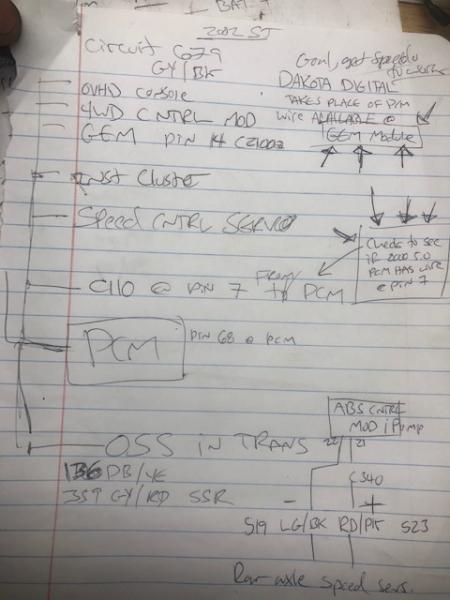 BAT
2002 ST
Circuit C679
GY/BK
OVHD Console
4WD CNTRL MOD
GEM PIN 14 C2100a
Goal, get Speedo
to work
DAKOTA DIGITAL
TAKES PLACE OF PCM
wire AVAILABLE @
GEM Module
Inst Cluster
Speed CNTRL SERVO
C110 @ PIN 7 From to PCM
Check to see
if 2000 5.0
PCM HAS wire
@ PIN 7
PCM
PIN 68 @ PCM
ABS CNTRL
MOD / Pump
22 21
OSS in TRANS
136 DB/YE
359 GY/RD SSR
S40
519 LG/BK RD/PK 523
Rear axle speed sens.